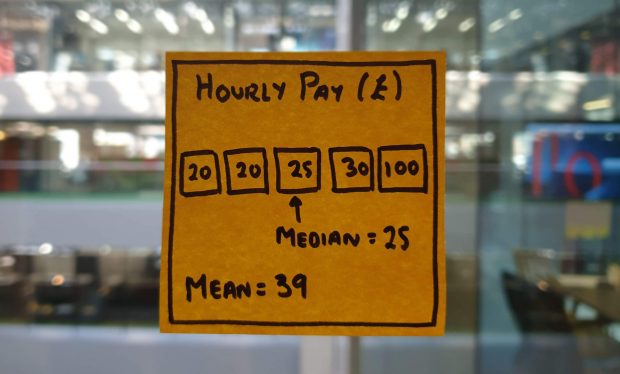 HOURLY PAY (£)
20 20 25 30 100
MEDIAN = 25
MEAN = 39